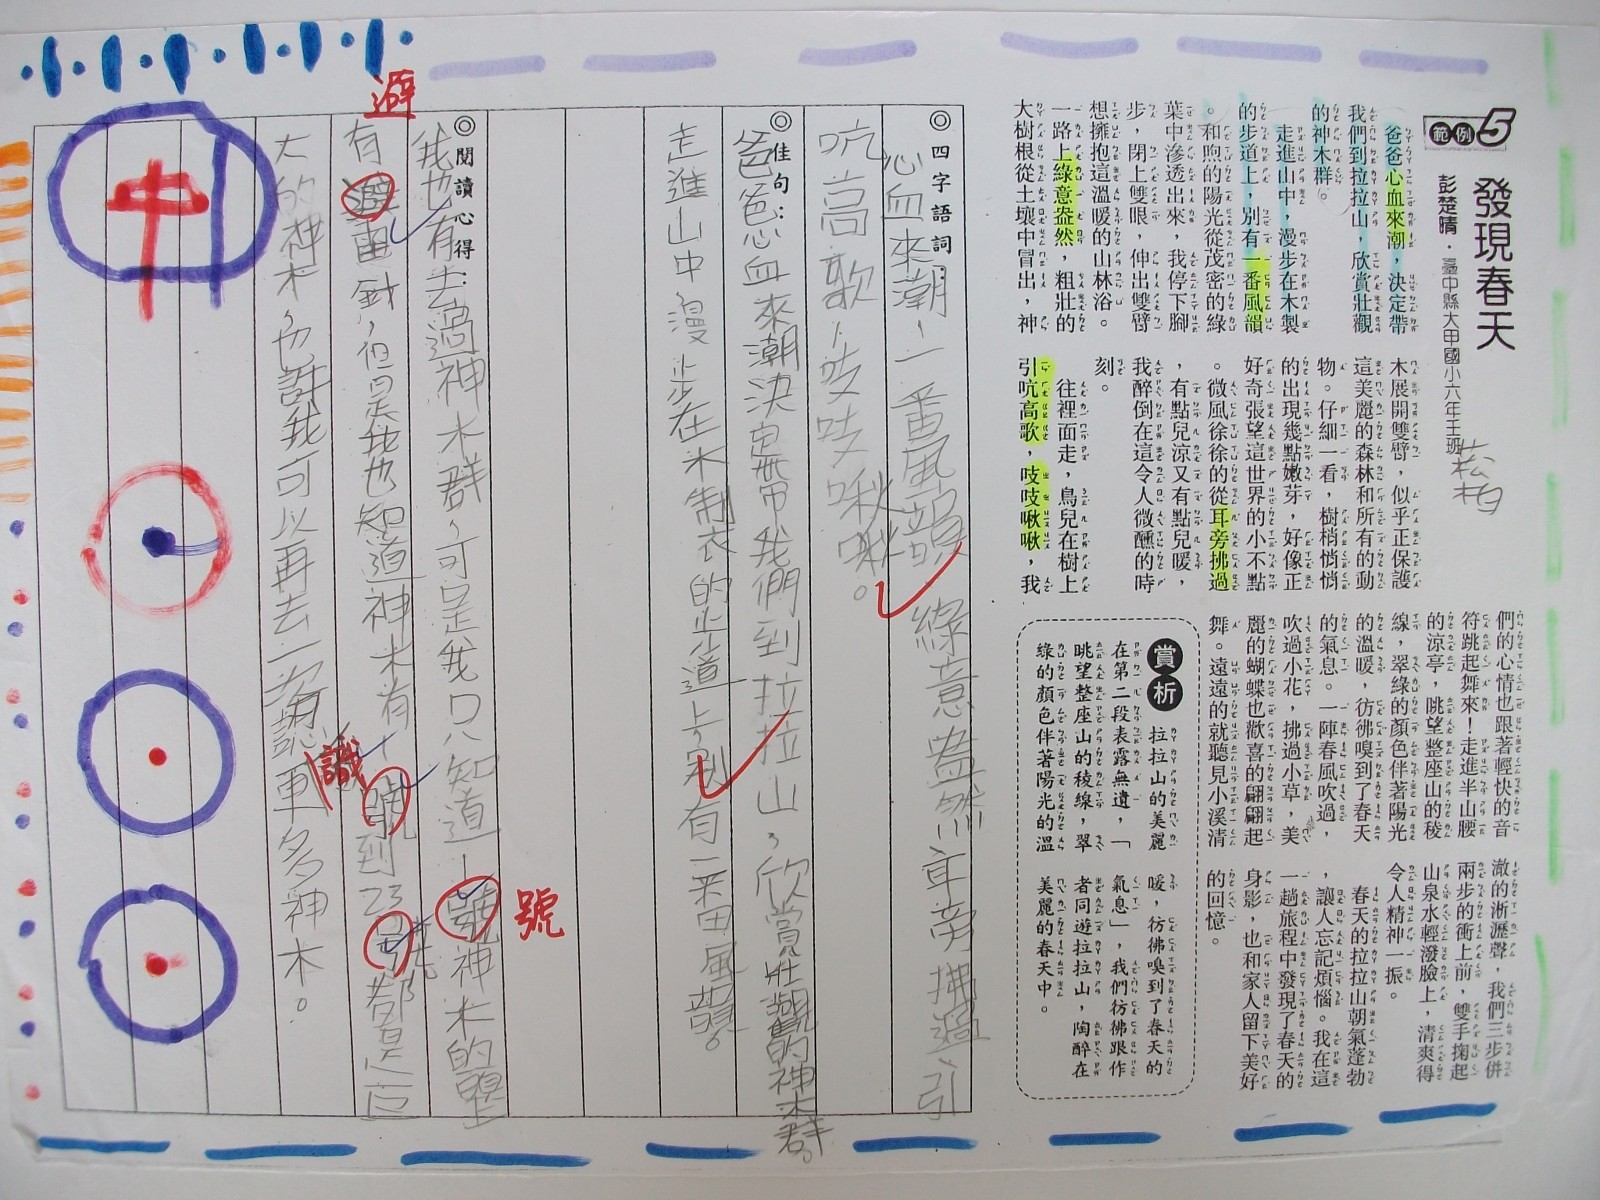 範例5
發現春天
彭楚晴・臺中縣大甲國小六年壬班
松柏
爸爸心血來潮，決定帶
我們到拉拉山，欣賞壯觀
的神木群。
走進山中，漫步在木製
的步道上，別有一番風韻
。和煦的陽光從茂密的綠
葉中滲透出來，我停下腳
步，閉上雙眼，伸出雙臂
想擁抱這溫暖的山林浴。
一路上綠意盎然，粗壯的
大樹根從土壤中冒出，神
木展開雙臂，似乎正保護
這美麗的森林和所有的動
物。仔細一看，樹梢悄悄
的出現幾點嫩芽，好像正
好奇張望這世界的小不點
。微風徐徐的從耳旁拂過
，有點兒涼又有點兒暖，
我醉倒在這令人微醺的時
刻。
往裡面走，鳥兒在樹上
引吭高歌，吱吱啾啾，我
們的心情也跟著輕快的音
符跳起舞來！走進半山腰
的涼亭，眺望整座山的稜
線，翠綠的顏色伴著陽光
的溫暖，彷彿嗅到了春天
的氣息。一陣春風吹過，
吹過小花，拂過小草，美
麗的蝴蝶也歡喜的翩翩起
舞。遠遠的就聽見小溪清
澈的淅瀝聲，我們三步併
兩步的衝上前，雙手掬起
山泉水輕潑臉上，清爽得
令人精神一振。
春天的拉拉山朝氣蓬勃
，讓人忘記煩惱。我在這
一趟旅程中發現了春天的
身影，也和家人留下美好
的回憶。
賞析
拉拉山的美麗
在第二段表露無遺，「
眺望整座山的稜線，翠
綠的顏色伴著陽光的溫
暖，彷彿嗅到了春天的
氣息」，我們彷彿跟作
者同遊拉拉山，陶醉在
美麗的春天中。
◎四字語詞：
心血來潮、一番風韻 綠意盎然、耳旁拂過、引
吭高歌、吱吱啾啾。
◎佳句：
爸爸心血來潮決定帶我們到拉拉山，欣賞壯觀的神木群。
走進山中漫步在木制衣的步道上，別有一番風韻。
◎閱讀心得：
我也有去過神木群，可是我只知道一號神木的里
號
有避雷針，但是我也知道神木有十號到23號都是巨
避
大的神木，也許我可以再去一次認識更多神木。
中